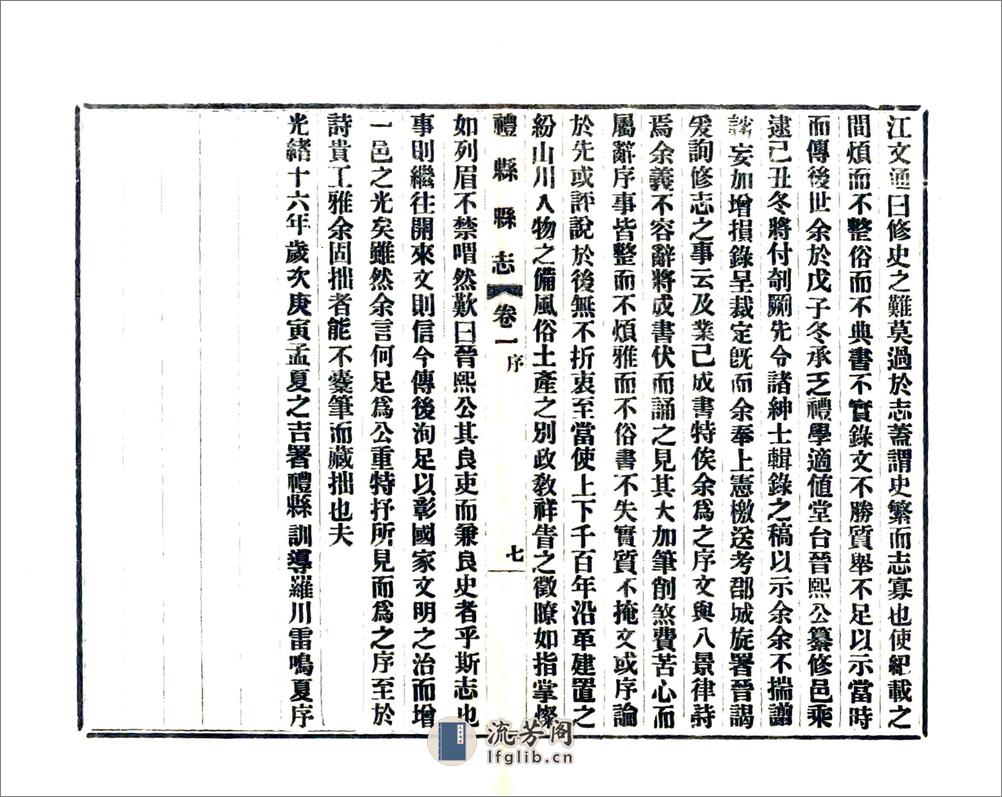 江文通曰修史之難莫過於志蓋謂史繁而志寡也使紀載之
間煩而不整俗而不典書不實錄文不勝質舉不足以示當時
而傳後世余於戊子冬承乏禮學適值堂台晉熙公纂修邑乘
逮己丑冬將付剞劂先令諸紳士輯錄之稿以示余余不揣譾
妄加增損錄呈裁定旣而余奉上憲檄送考郡城旋署晉謁
爰詢修志之事云及業已成書特俟余爲之序文與八景律詩
焉余義不容辭將成書伏而誦之見其大加筆削煞費苦心而
屬辭序事皆整而不煩雅而不俗書不失實質不掩文或序論
於先或評說於後無不折衷至當使上下千百年沿革建置之
紛山川人物之備風俗土產之別政敎祥眚之徵瞭如指掌燦
禮縣縣志 卷一 序 七
如列眉不禁喟然歎曰晉熙公其良吏而兼良史者乎斯志也
事則繼往開來文則信今傳後洵足以彰國家文明之治而增
一邑之光矣雖然余言何足爲公重特抒所見而爲之序至於
詩貴工雅余固拙者能不橐筆而藏拙也夫
光緒十六年歲次庚寅孟夏之吉署禮縣訓導羅川雷鳴夏序
流芳阁
lfglib.cn